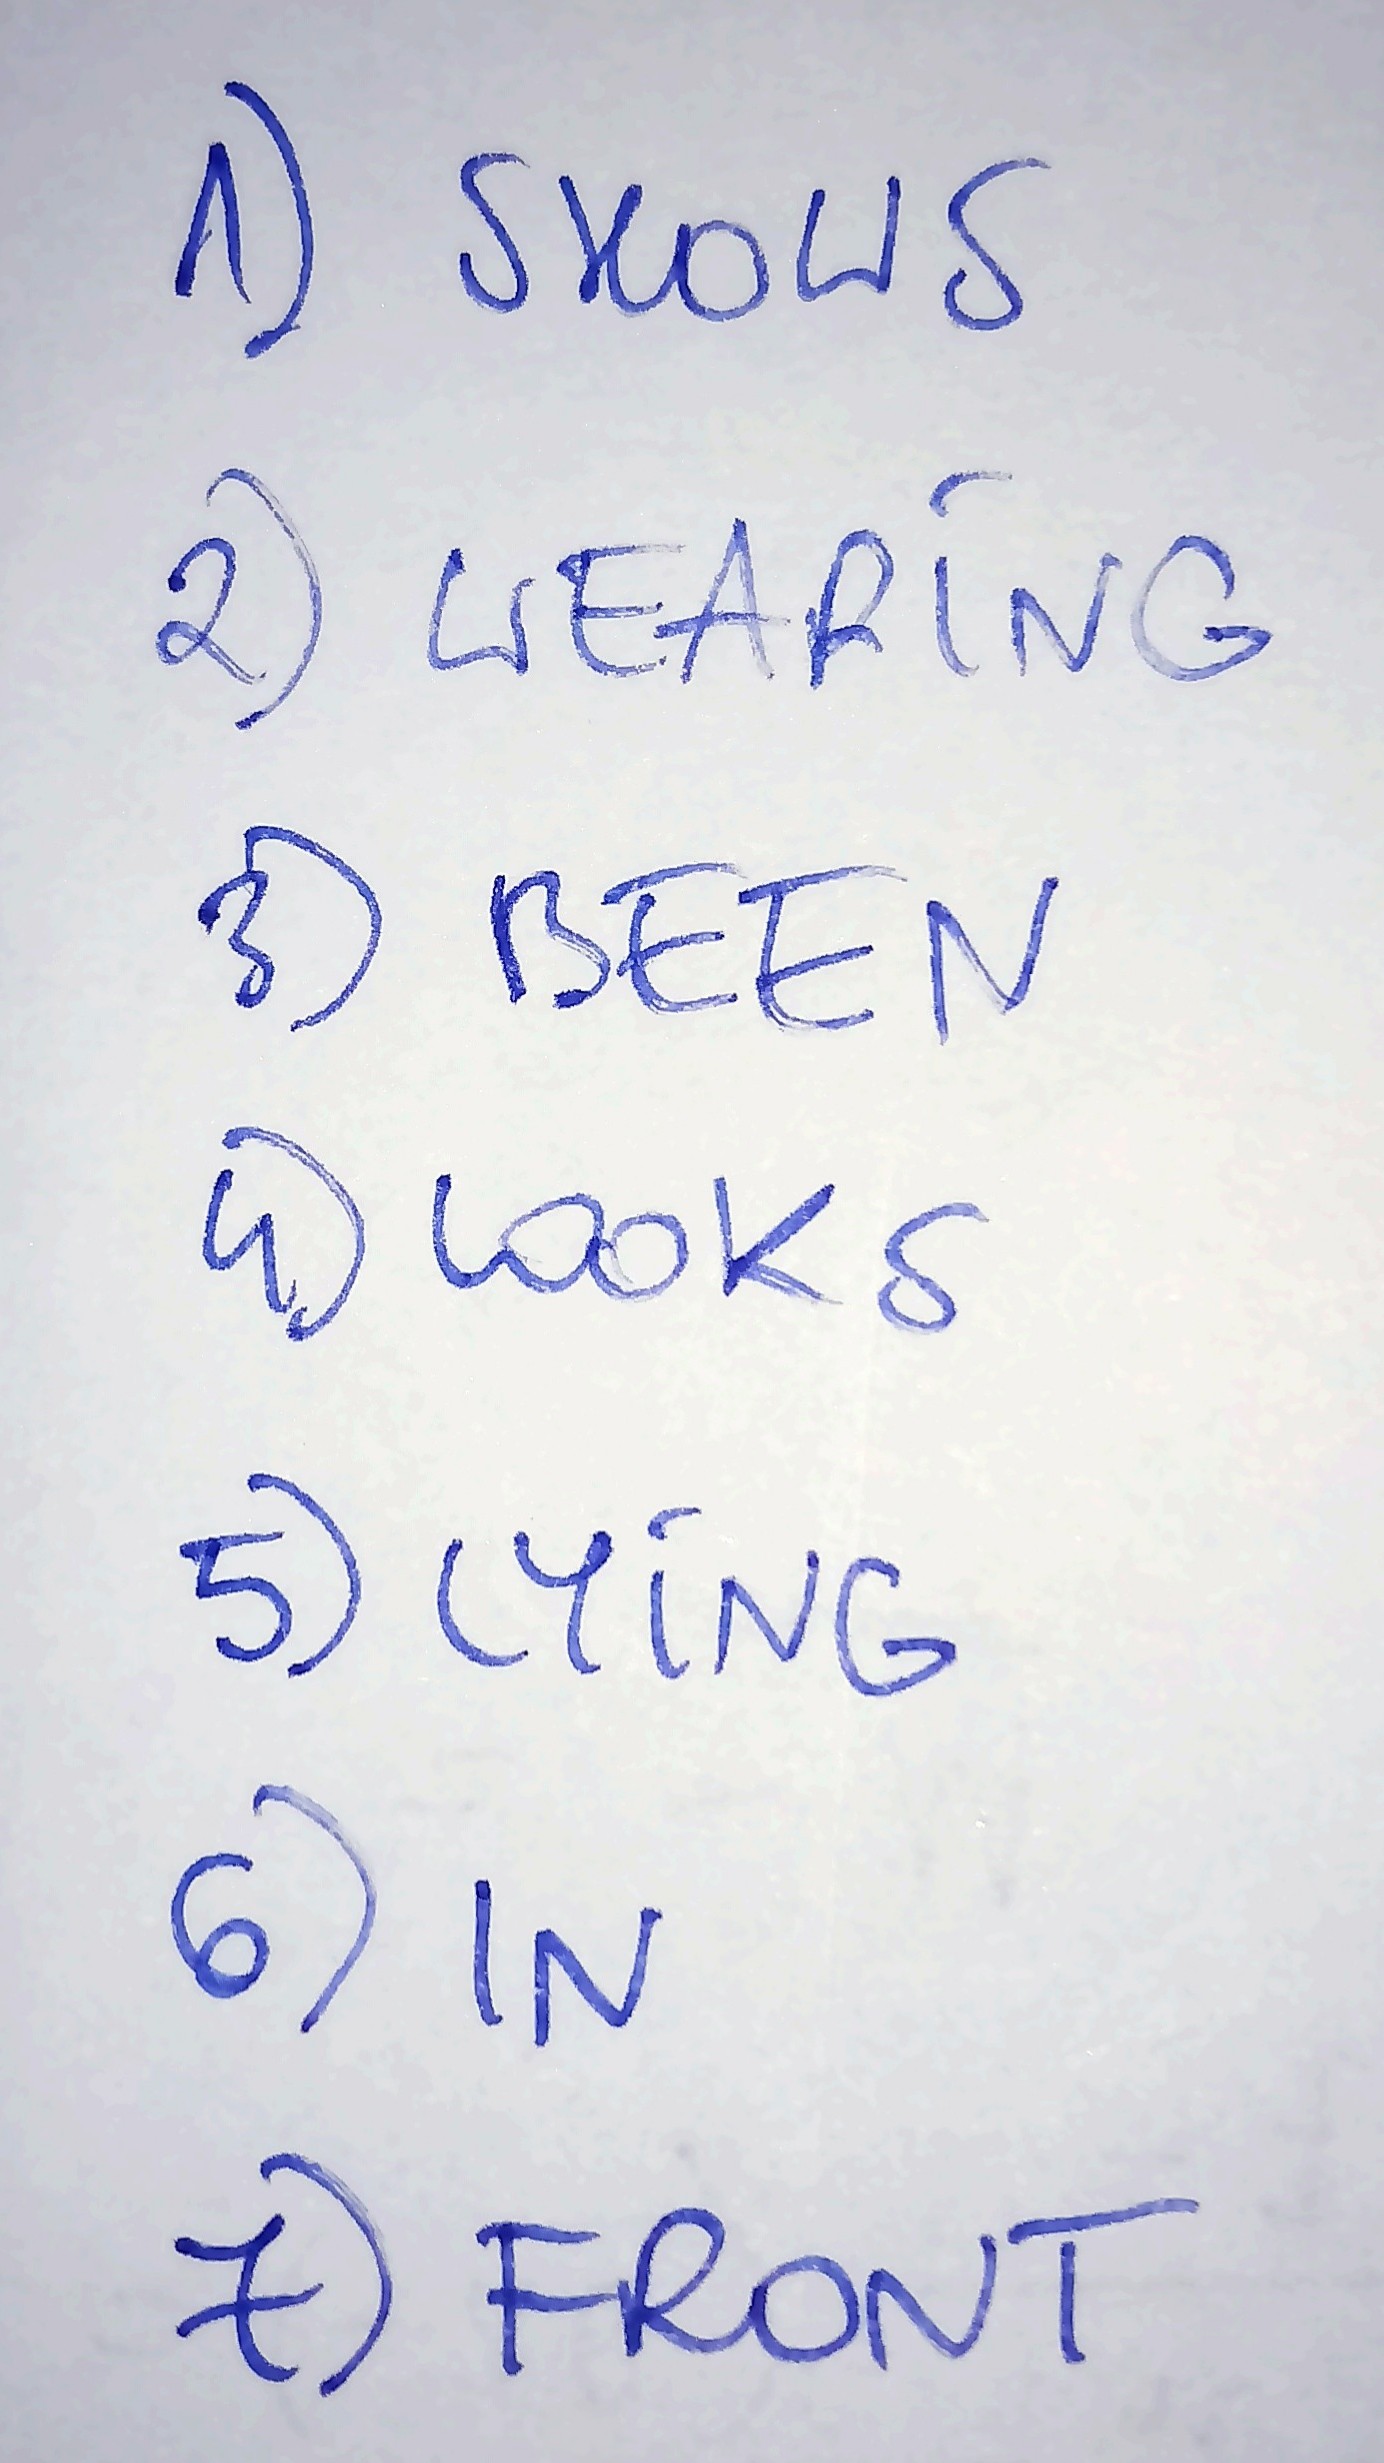 1) SHOWS
2) WEARING
3) BEEN
4) LOOKS
5) LYING
6) IN
7) FRONT